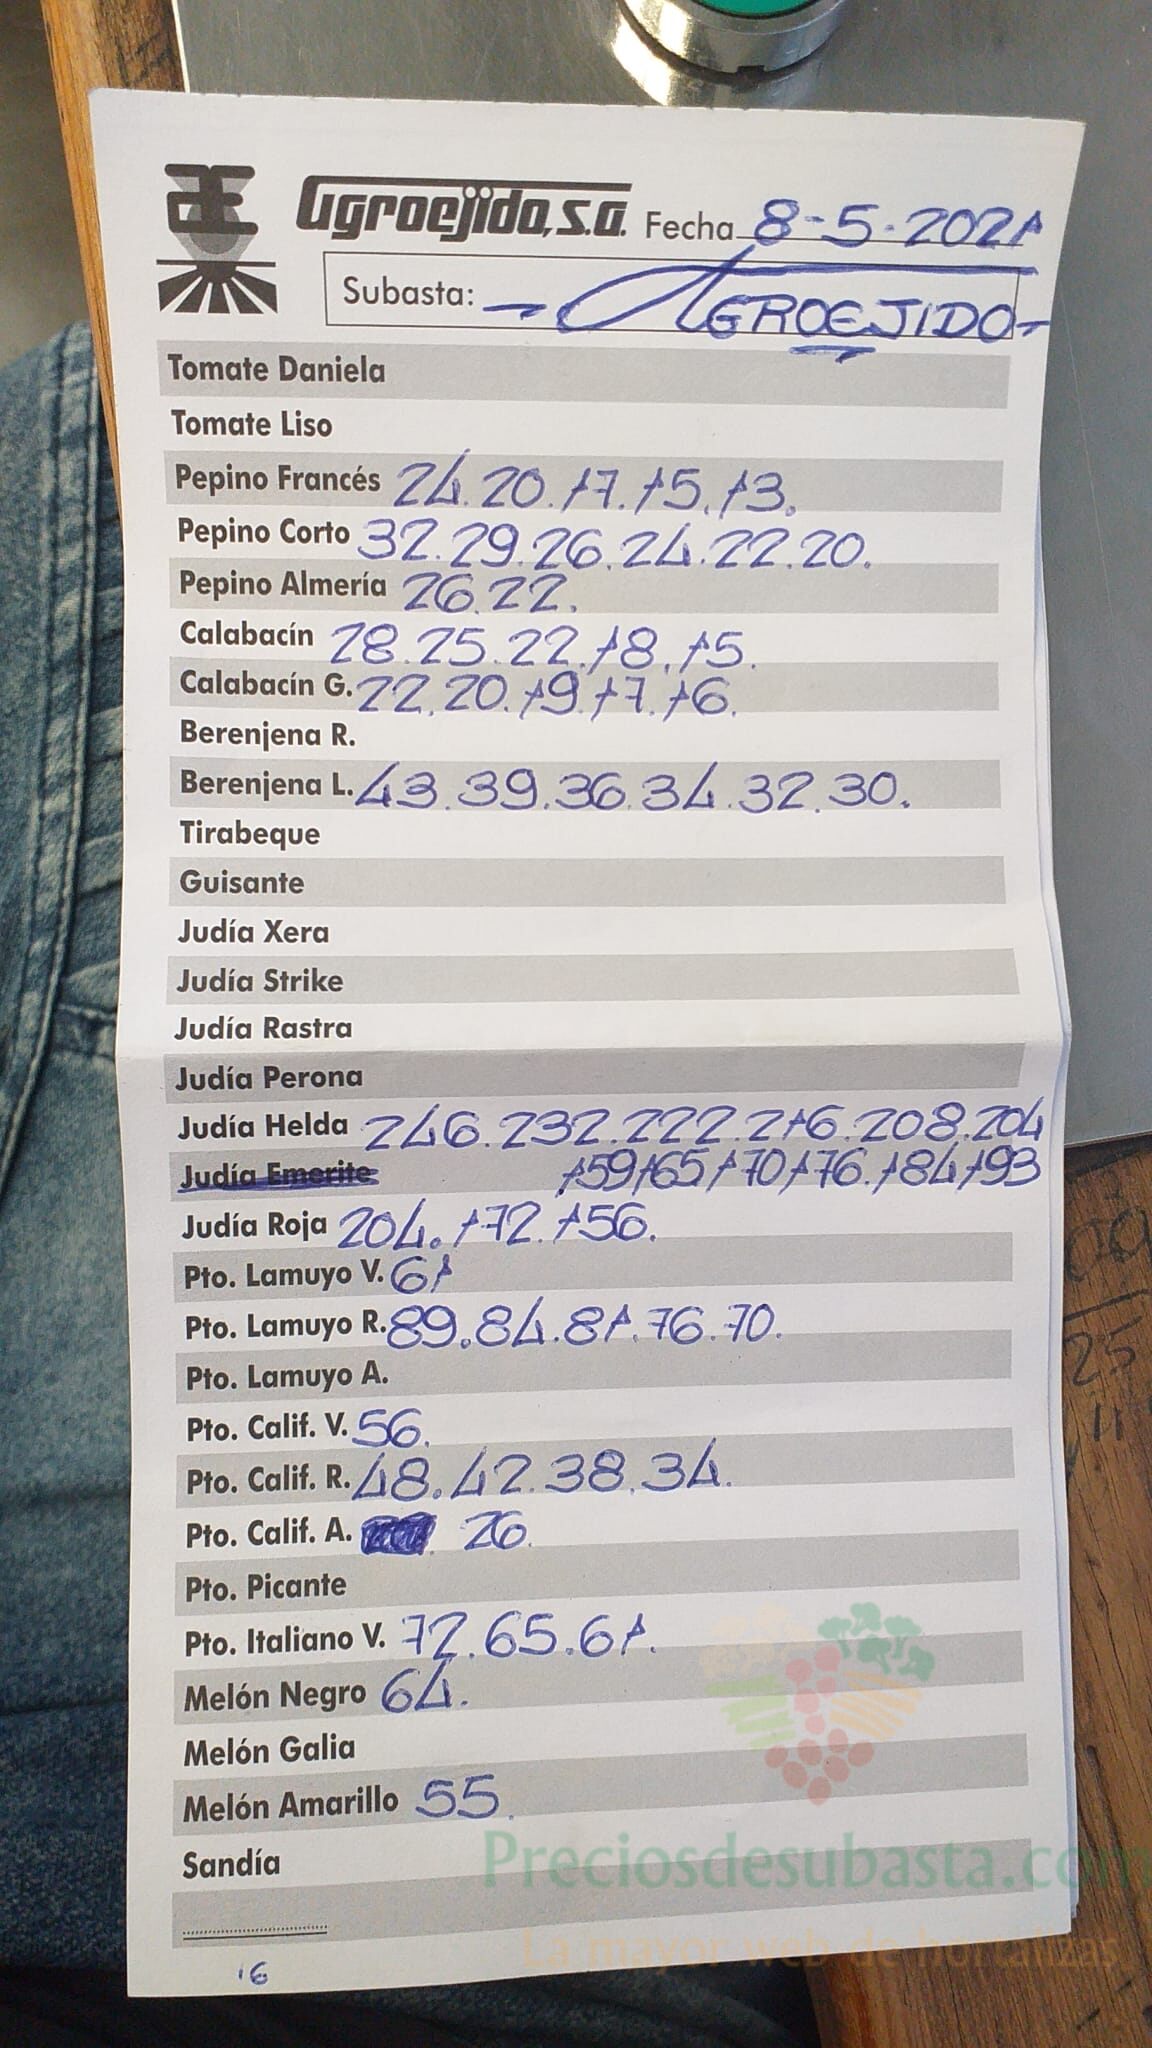 Agroejido, S.A. Fecha 8-5-2021
Subasta: - AGROEJIDO -
Tomate Daniela
Tomate Liso
Pepino Francés 24.20.17.15.13.
Pepino Corto 32.29.26.24.22.20.
Pepino Almería 26.22.
Calabacín 28.25.22.18.15.
Calabacín G. 22.20.19.17.16.
Berenjena R.
Berenjena L. 43.39.36.34.32.30.
Tirabeque
Guisante
Judía Xera
Judía Strike
Judía Rastra
Judía Perona
Judía Helda 246.232.222.216.208.204
Judía Emerite 159/165/170/176.184/193
Judía Roja 204.172.156.
Pto. Lamuyo V. 61
Pto. Lamuyo R. 89.84.81.76.70.
Pto. Lamuyo A.
Pto. Calif. V. 56.
Pto. Calif. R. 48.42.38.34.
Pto. Calif. A. 26.
Pto. Picante
Pto. Italiano V. 72.65.61.
Melón Negro 64.
Melón Galia
Melón Amarillo 55.
Sandía
Preciosdesubasta.com
La mayor web de hortalizas
16
25